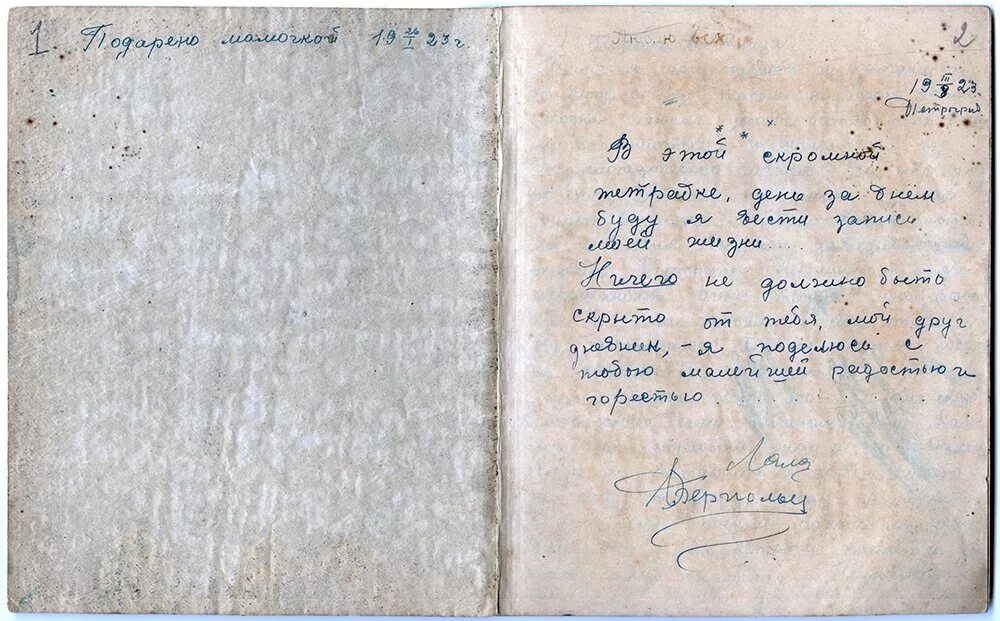 1
Подарено мамочкой 19 26/I 23 г.
Люблю всех
2
19 III/8 23.
Петроград.
* * *
В этой скромной
тетрадке, день за днем
буду я вести записи
моей жизни...
Ничего не должно быть
скрыто от тебя, мой друг
дневник, – я поделюсь с
тобою малейшей радостью и
горестью . . . . . . . . .
Ляля
Берггольц